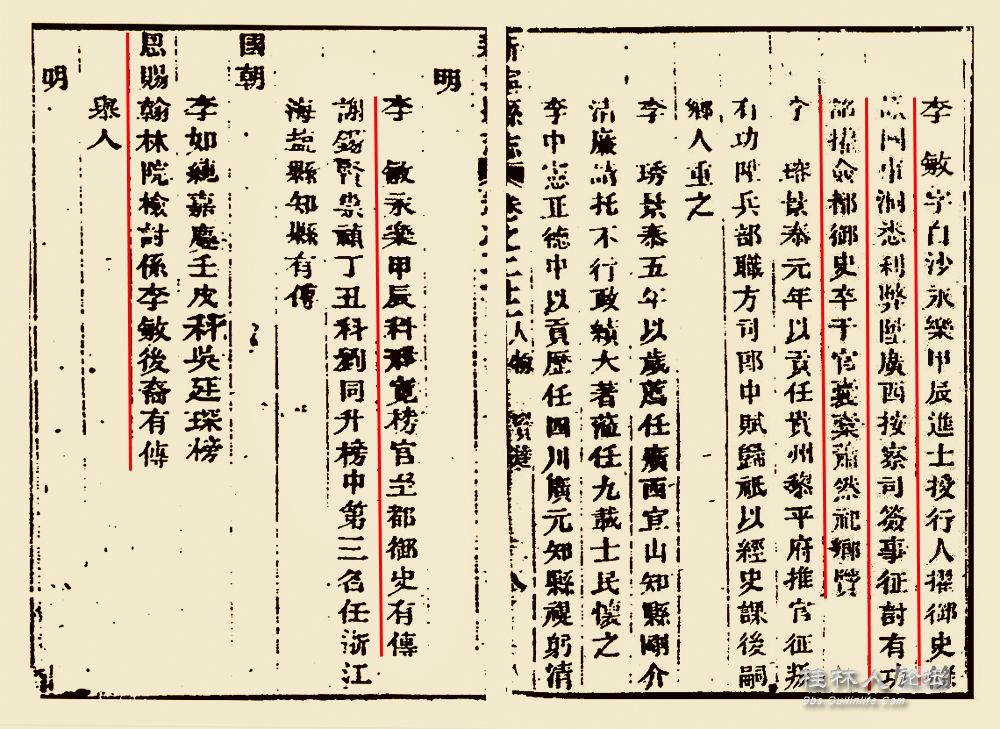 李 敏字白沙永樂甲辰進士授行人擢御史
事洞悉利弊陞廣西按察司簽事征討有功
詔擢僉都御史卒于官囊槖蕭然祀鄉賢
景泰元年以貢任貴州黎平府推官征
有功陞兵部職方司郎中賦歸祇以經史課後嗣
鄉人重之
李 琇景泰五年以歲薦任廣西宜山知縣剛介
清廉請托不行政績大著蒞任九載士民懷之
李中憲正德中以貢歷任四川廣元知縣視躬清
縣志 人物 賢達
明
李 敏永樂甲辰科邢寬榜官至都御史有傳
謝錫賢崇禎丁丑科劉同升榜中第三名任浙江
海鹽縣知縣有傳
國朝
李如繩嘉慶壬戌科吳廷琛榜
恩賜翰林院檢討係李敏後裔有傳
舉人
明
桂林人论坛
Bbs.Guilinlife.Com